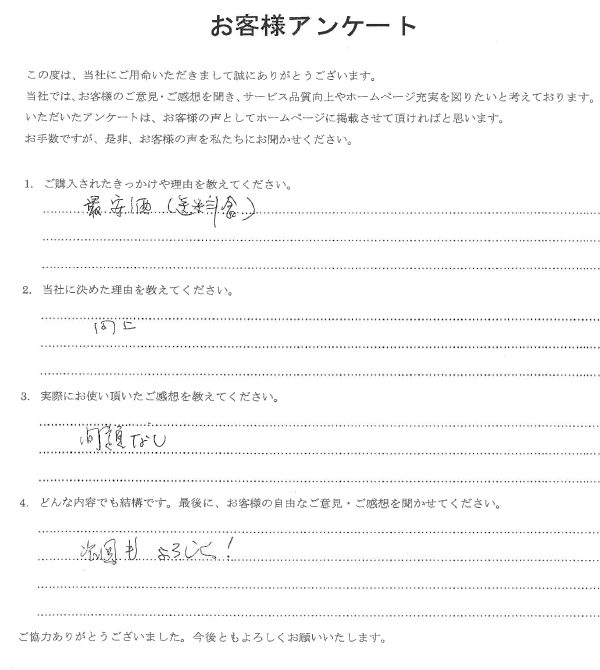 お客様アンケート
この度は、当社にご用命いただきまして誠にありがとうございます。
当社では、お客様のご意見・ご感想を聞き、サービス品質向上やホームページ充実を図りたいと考えております。
いただいたアンケートは、お客様の声としてホームページに掲載させて頂ければと思います。
お手数ですが、是非、お客様の声を私たちにお聞かせください。
1. ご購入されたきっかけや理由を教えてください。
最安価（送料含）
2. 当社に決めた理由を教えてください。
同上
3. 実際にお使い頂いたご感想を教えてください。
問題なし
4. どんな内容でも結構です。最後に、お客様の自由なご意見・ご感想を聞かせてください。
次回もよろしく！
ご協力ありがとうございました。今後ともよろしくお願いいたします。